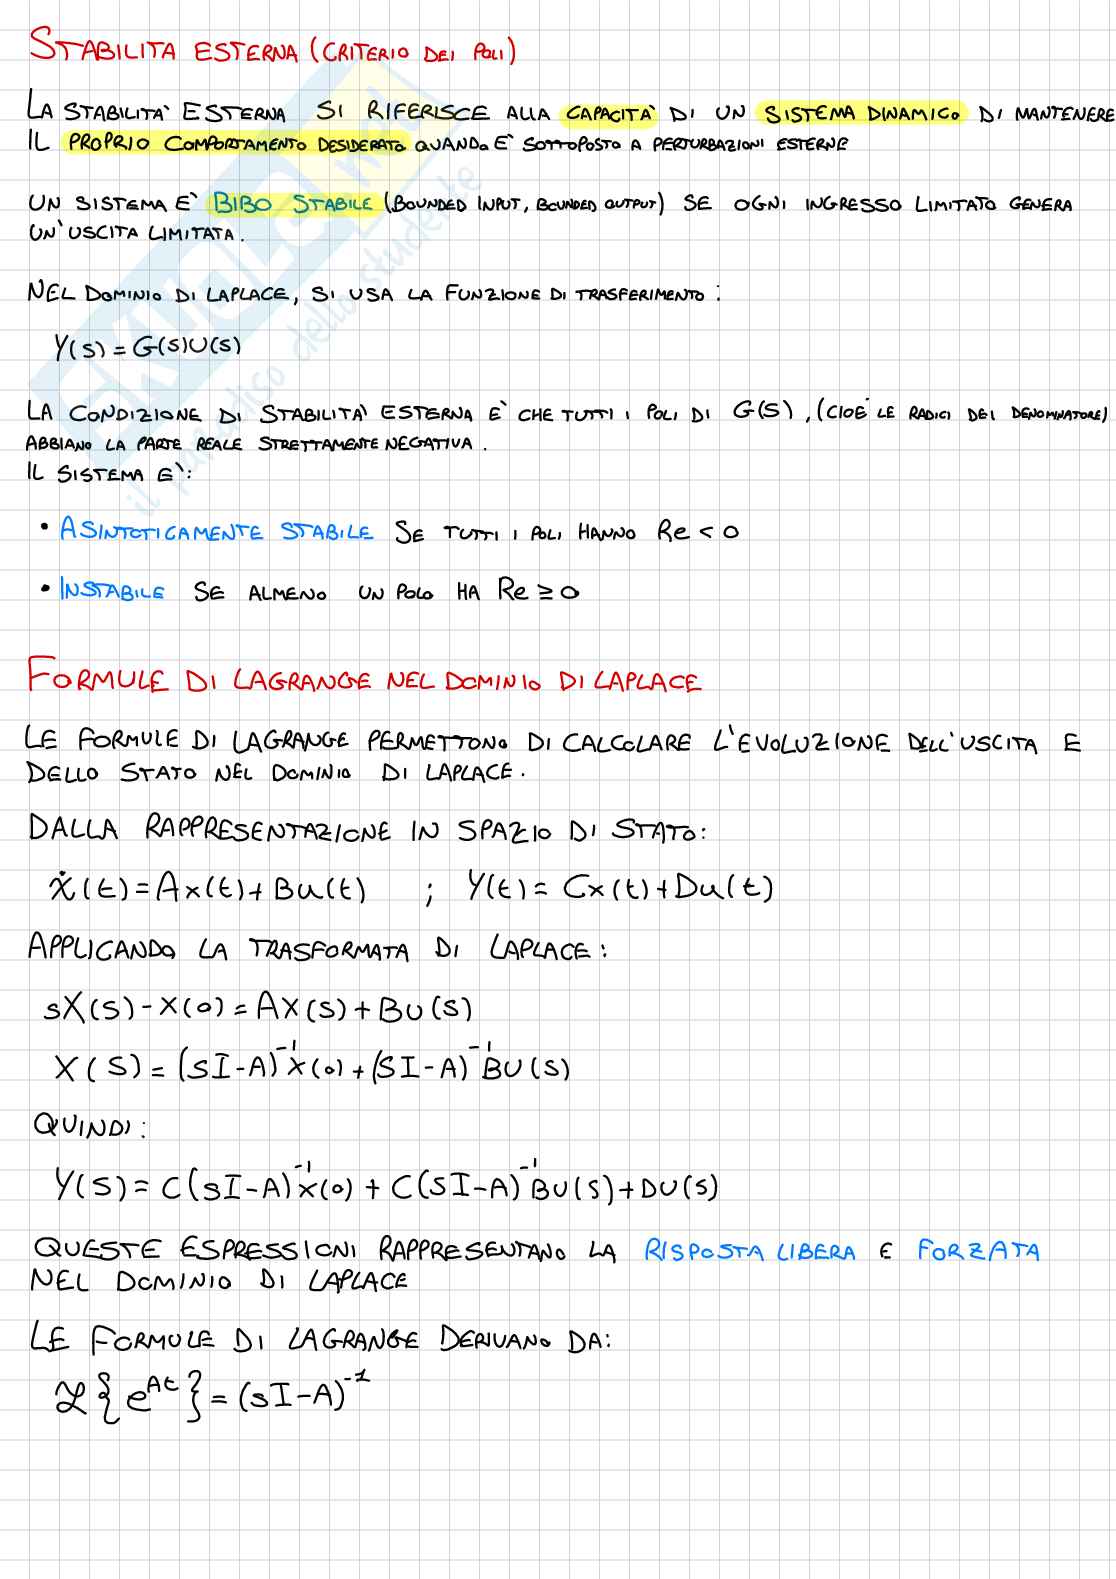 STABILITA ESTERNA (CRITERIO DEI POLI)
LA STABILITA' ESTERNA SI RIFERISCE ALLA CAPACITA' DI UN SISTEMA DINAMICO DI MANTENERE
IL PROPRIO COMPORTAMENTO DESIDERATO QUANDO E' SOTTOPOSTO A PERTURBAZIONI ESTERNE
UN SISTEMA E' BIBO STABILE (BOUNDED INPUT, BOUNDED OUTPUT) SE OGNI INGRESSO LIMITATO GENERA
UN'USCITA LIMITATA.
NEL DOMINIO DI LAPLACE, SI USA LA FUNZIONE DI TRASFERIMENTO:
Y(s) = G(s)U(s)
LA CONDIZIONE DI STABILITA' ESTERNA E' CHE TUTTI I POLI DI G(S), (CIOE' LE RADICI DEL DENOMINATORE)
ABBIANO LA PARTE REALE STRETTAMENTE NEGATIVA.
IL SISTEMA E':
• ASINTOTICAMENTE STABILE SE TUTTI I POLI HANNO Re < 0
• INSTABILE SE ALMENO UN POLO HA Re ≥ 0
FORMULE DI LAGRANGE NEL DOMINIO DI LAPLACE
LE FORMULE DI LAGRANGE PERMETTONO DI CALCOLARE L'EVOLUZIONE DELL'USCITA E
DELLO STATO NEL DOMINIO DI LAPLACE.
DALLA RAPPRESENTAZIONE IN SPAZIO DI STATO:
ẋ(t) = Ax(t) + Bu(t) ; Y(t) = Cx(t) + Du(t)
APPLICANDO LA TRASFORMATA DI LAPLACE:
sX(s) - X(0) = AX(s) + BU(s)
X(S) = (sI-A)⁻¹x(0) + (SI-A)⁻¹BU(s)
QUINDI:
Y(S) = C(sI-A)⁻¹x(0) + C(SI-A)⁻¹BU(S) + DU(s)
QUESTE ESPRESSIONI RAPPRESENTANO LA RISPOSTA LIBERA E FORZATA
NEL DOMINIO DI LAPLACE
LE FORMULE DI LAGRANGE DERIVANO DA:
ℒ{e^At} = (sI-A)⁻¹
SKUOLA.net
il paradiso dello studente